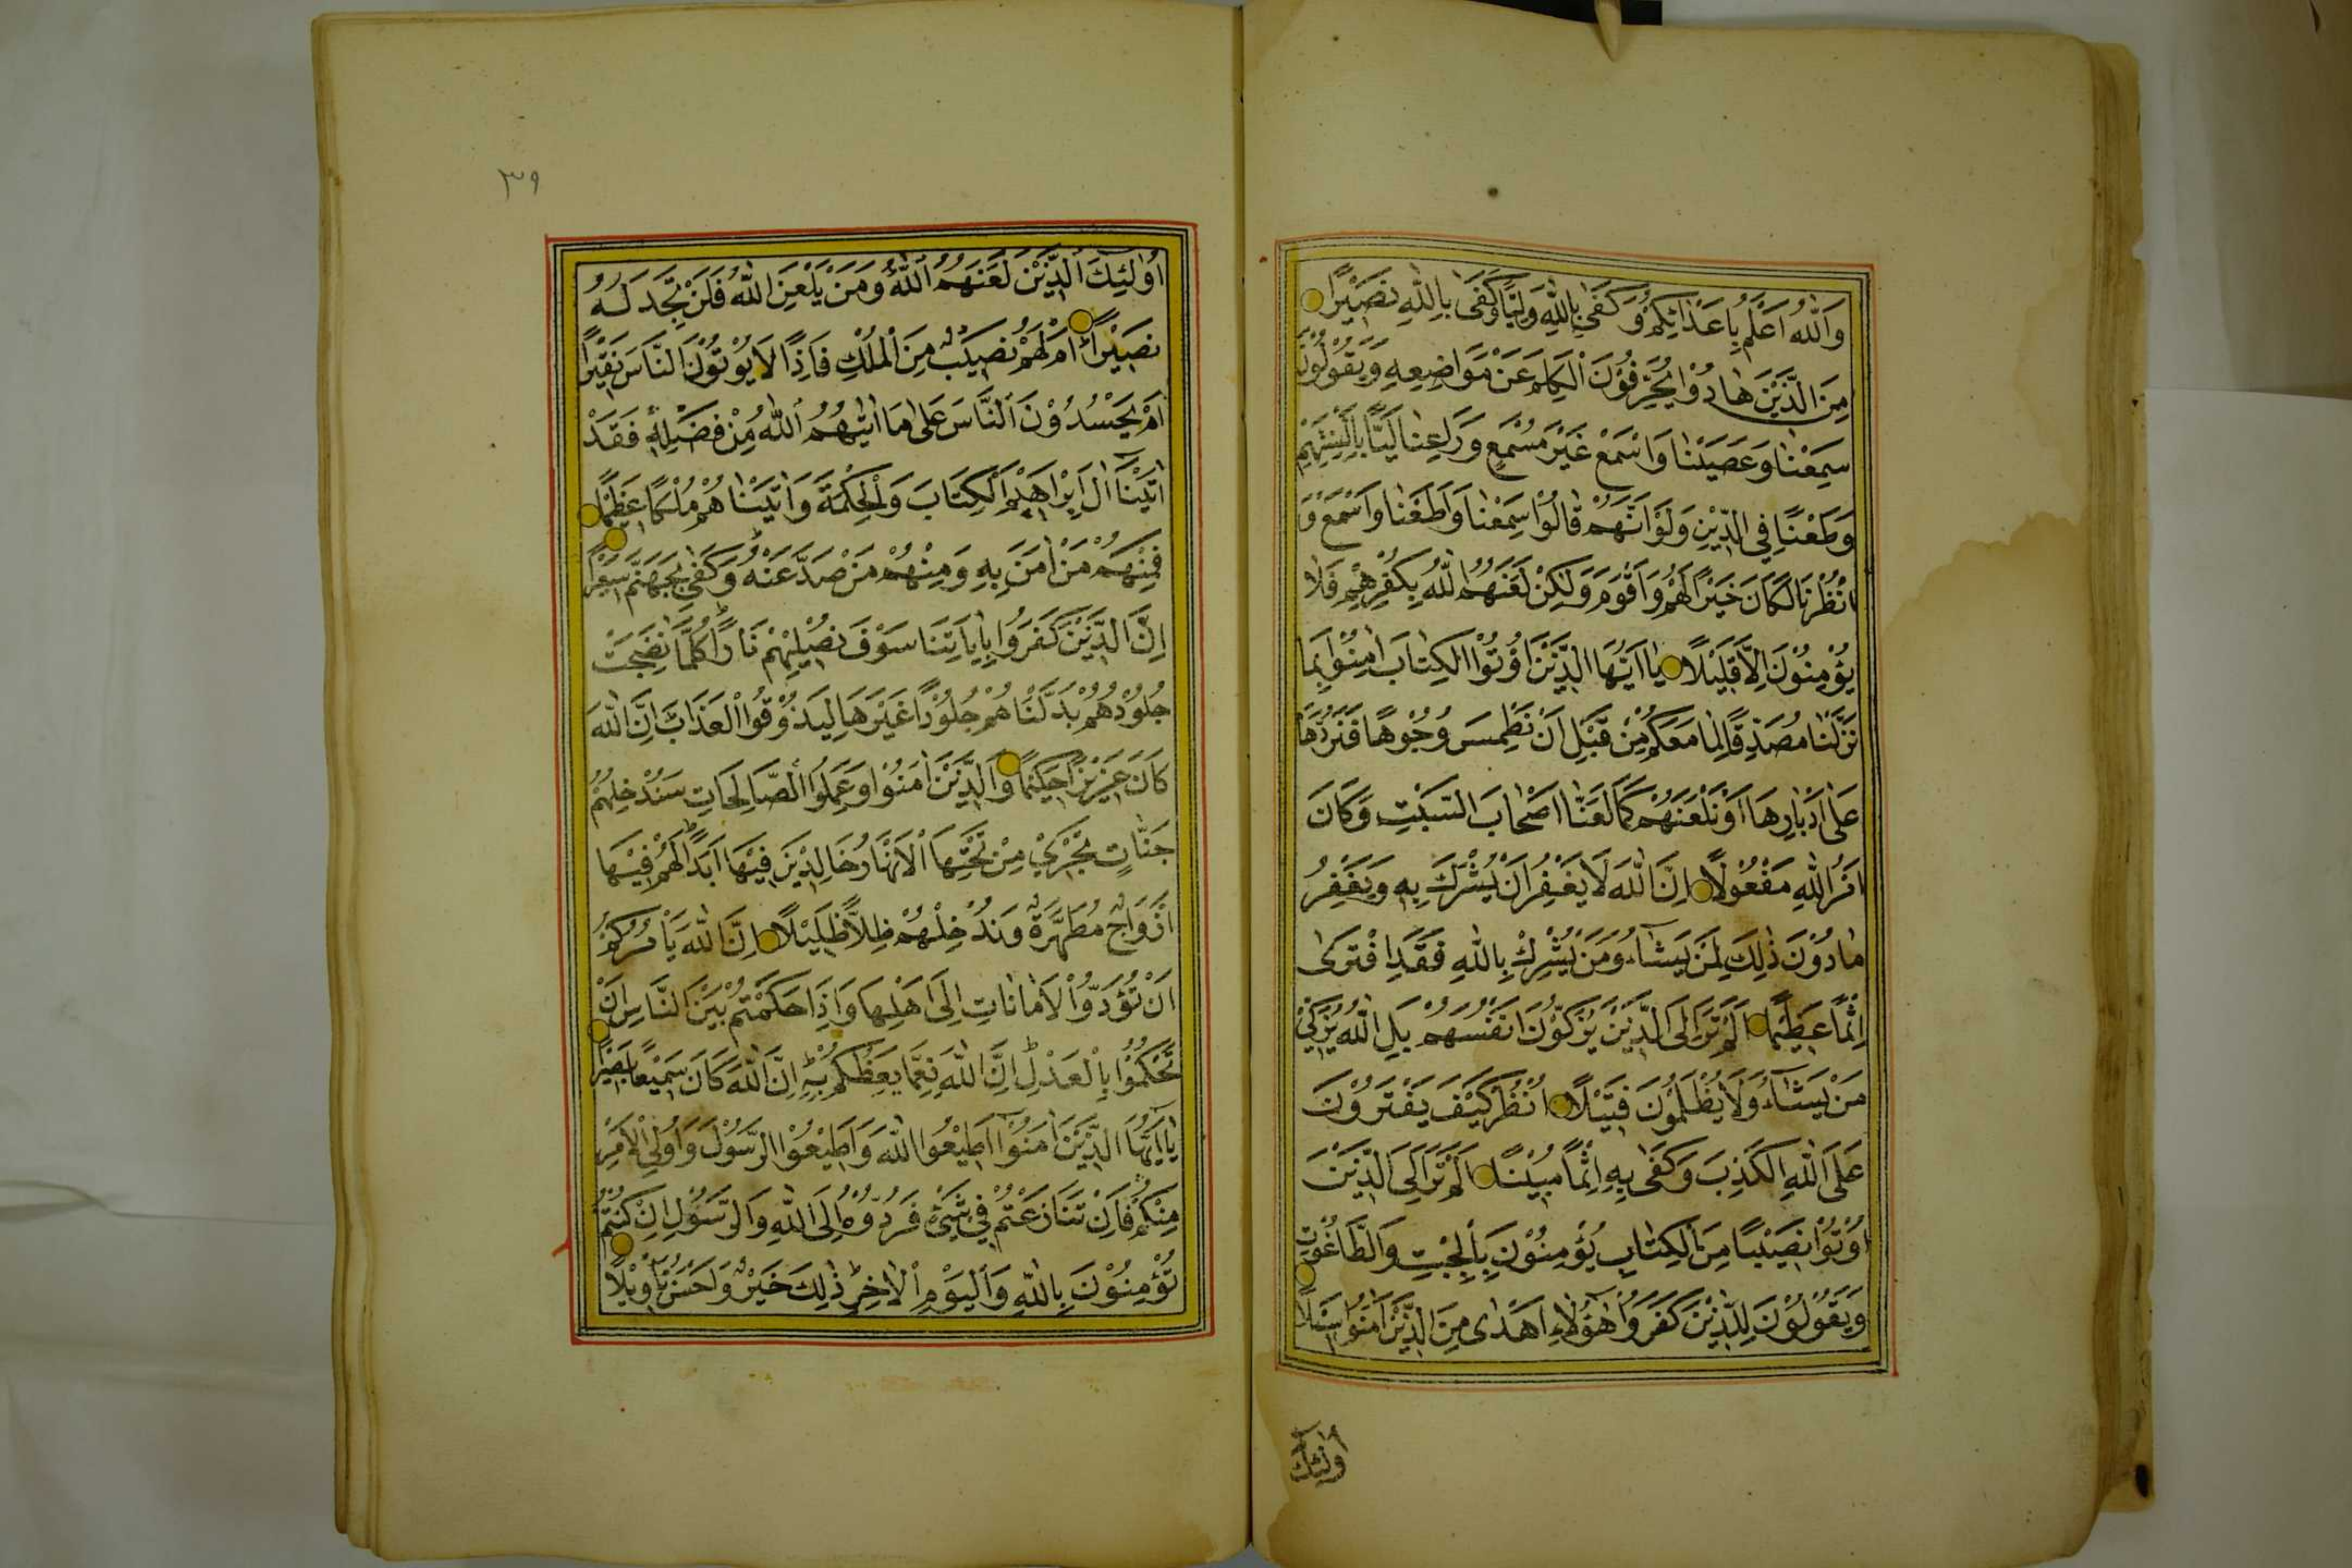 وَاللّٰهُ اَعْلَمُ بِاَعْدَائِكُمْ وَكَفٰى بِاللّٰهِ وَلِيًّا وَكَفٰى بِاللّٰهِ نَصِيْرًا
مِنَ الَّذِيْنَ هَادُوْا يُحَرِّفُوْنَ الْكَلِمَ عَنْ مَوَاضِعِهِ وَيَقُوْلُوْنَ
سَمِعْنَا وَعَصَيْنَا وَاسْمَعْ غَيْرَ مُسْمَعٍ وَرَاعِنَا لَيًّا بِاَلْسِنَتِهِمْ
وَطَعْنًا فِي الدِّيْنِ وَلَوْ اَنَّهُمْ قَالُوْا سَمِعْنَا وَاَطَعْنَا وَاسْمَعْ وَ
انْظُرْنَا لَكَانَ خَيْرًا لَهُمْ وَاَقْوَمَ وَلٰكِنْ لَعَنَهُمُ اللّٰهُ بِكُفْرِهِمْ فَلَا
يُؤْمِنُوْنَ اِلَّا قَلِيْلًا يَا اَيُّهَا الَّذِيْنَ اُوْتُوا الْكِتَابَ اٰمِنُوْا بِمَا
نَزَّلْنَا مُصَدِّقًا لِمَا مَعَكُمْ مِنْ قَبْلِ اَنْ نَطْمِسَ وُجُوْهًا فَنَرُدَّهَا
عَلٰى اَدْبَارِهَا اَوْ نَلْعَنَهُمْ كَمَا لَعَنَّا اَصْحَابَ السَّبْتِ وَكَانَ
اَمْرُ اللّٰهِ مَفْعُوْلًا اِنَّ اللّٰهَ لَا يَغْفِرُ اَنْ يُشْرَكَ بِهِ وَيَغْفِرُ
مَا دُوْنَ ذٰلِكَ لِمَنْ يَشَاءُ وَمَنْ يُشْرِكْ بِاللّٰهِ فَقَدِ افْتَرٰى
اِثْمًا عَظِيْمًا اَلَمْ تَرَ اِلَى الَّذِيْنَ يُزَكُّوْنَ اَنْفُسَهُمْ بَلِ اللّٰهُ يُزَكِّيْ
مَنْ يَشَاءُ وَلَا يُظْلَمُوْنَ فَتِيْلًا اُنْظُرْ كَيْفَ يَفْتَرُوْنَ
عَلَى اللّٰهِ الْكَذِبَ وَكَفٰى بِهِ اِثْمًا مُبِيْنًا اَلَمْ تَرَ اِلَى الَّذِيْنَ
اُوْتُوْا نَصِيْبًا مِنَ الْكِتَابِ يُؤْمِنُوْنَ بِالْجِبْتِ وَالطَّاغُوْتِ
وَيَقُوْلُوْنَ لِلَّذِيْنَ كَفَرُوْا هٰؤُلَاءِ اَهْدٰى مِنَ الَّذِيْنَ اٰمَنُوْا سَبِيْلًا
اولٰئك
٣٩
اُولٰئِكَ الَّذِيْنَ لَعَنَهُمُ اللّٰهُ وَمَنْ يَلْعَنِ اللّٰهُ فَلَنْ تَجِدَ لَهُ
نَصِيْرًا اَمْ لَهُمْ نَصِيْبٌ مِنَ الْمُلْكِ فَاِذًا لَا يُوْتُوْنَ النَّاسَ نَقِيْرًا
اَمْ يَحْسُدُوْنَ النَّاسَ عَلٰى مَا اٰتٰيهُمُ اللّٰهُ مِنْ فَضْلِهِ فَقَدْ
اٰتَيْنَا اٰلَ اِبْرَاهِيْمَ الْكِتَابَ وَالْحِكْمَةَ وَاٰتَيْنَاهُمْ مُلْكًا عَظِيْمًا
فَمِنْهُمْ مَنْ اٰمَنَ بِهِ وَمِنْهُمْ مَنْ صَدَّ عَنْهُ وَكَفٰى بِجَهَنَّمَ سَعِيْرًا
اِنَّ الَّذِيْنَ كَفَرُوا بِاٰيَاتِنَا سَوْفَ نُصْلِيْهِمْ نَارًا كُلَّمَا نَضِجَتْ
جُلُوْدُهُمْ بَدَّلْنَاهُمْ جُلُوْدًا غَيْرَهَا لِيَذُوْقُوا الْعَذَابَ اِنَّ اللّٰهَ
كَانَ عَزِيْزًا حَكِيْمًا وَالَّذِيْنَ اٰمَنُوْا وَعَمِلُوا الصَّالِحَاتِ سَنُدْخِلُهُمْ
جَنَّاتٍ تَجْرِيْ مِنْ تَحْتِهَا الْاَنْهَارُ خَالِدِيْنَ فِيْهَا اَبَدًا لَهُمْ فِيْهَا
اَزْوَاجٌ مُطَهَّرَةٌ وَنُدْخِلُهُمْ ظِلًّا ظَلِيْلًا اِنَّ اللّٰهَ يَاْمُرُكُمْ
اَنْ تُؤَدُّوا الْاَمَانَاتِ اِلٰى اَهْلِهَا وَاِذَا حَكَمْتُمْ بَيْنَ النَّاسِ اَنْ
تَحْكُمُوْا بِالْعَدْلِ اِنَّ اللّٰهَ نِعِمَّا يَعِظُكُمْ بِهِ اِنَّ اللّٰهَ كَانَ سَمِيْعًا بَصِيْرًا
يَا اَيُّهَا الَّذِيْنَ اٰمَنُوْا اَطِيْعُوا اللّٰهَ وَاَطِيْعُوْا الرَّسُوْلَ وَاُولِي الْاَمْرِ
مِنْكُمْ فَاِنْ تَنَازَعْتُمْ فِيْ شَيْءٍ فَرُدُّوْهُ اِلَى اللّٰهِ وَالرَّسُوْلِ اِنْ كُنْتُمْ
تُؤْمِنُوْنَ بِاللّٰهِ وَالْيَوْمِ الْاٰخِرِ ذٰلِكَ خَيْرٌ وَاَحْسَنُ تَاْوِيْلًا